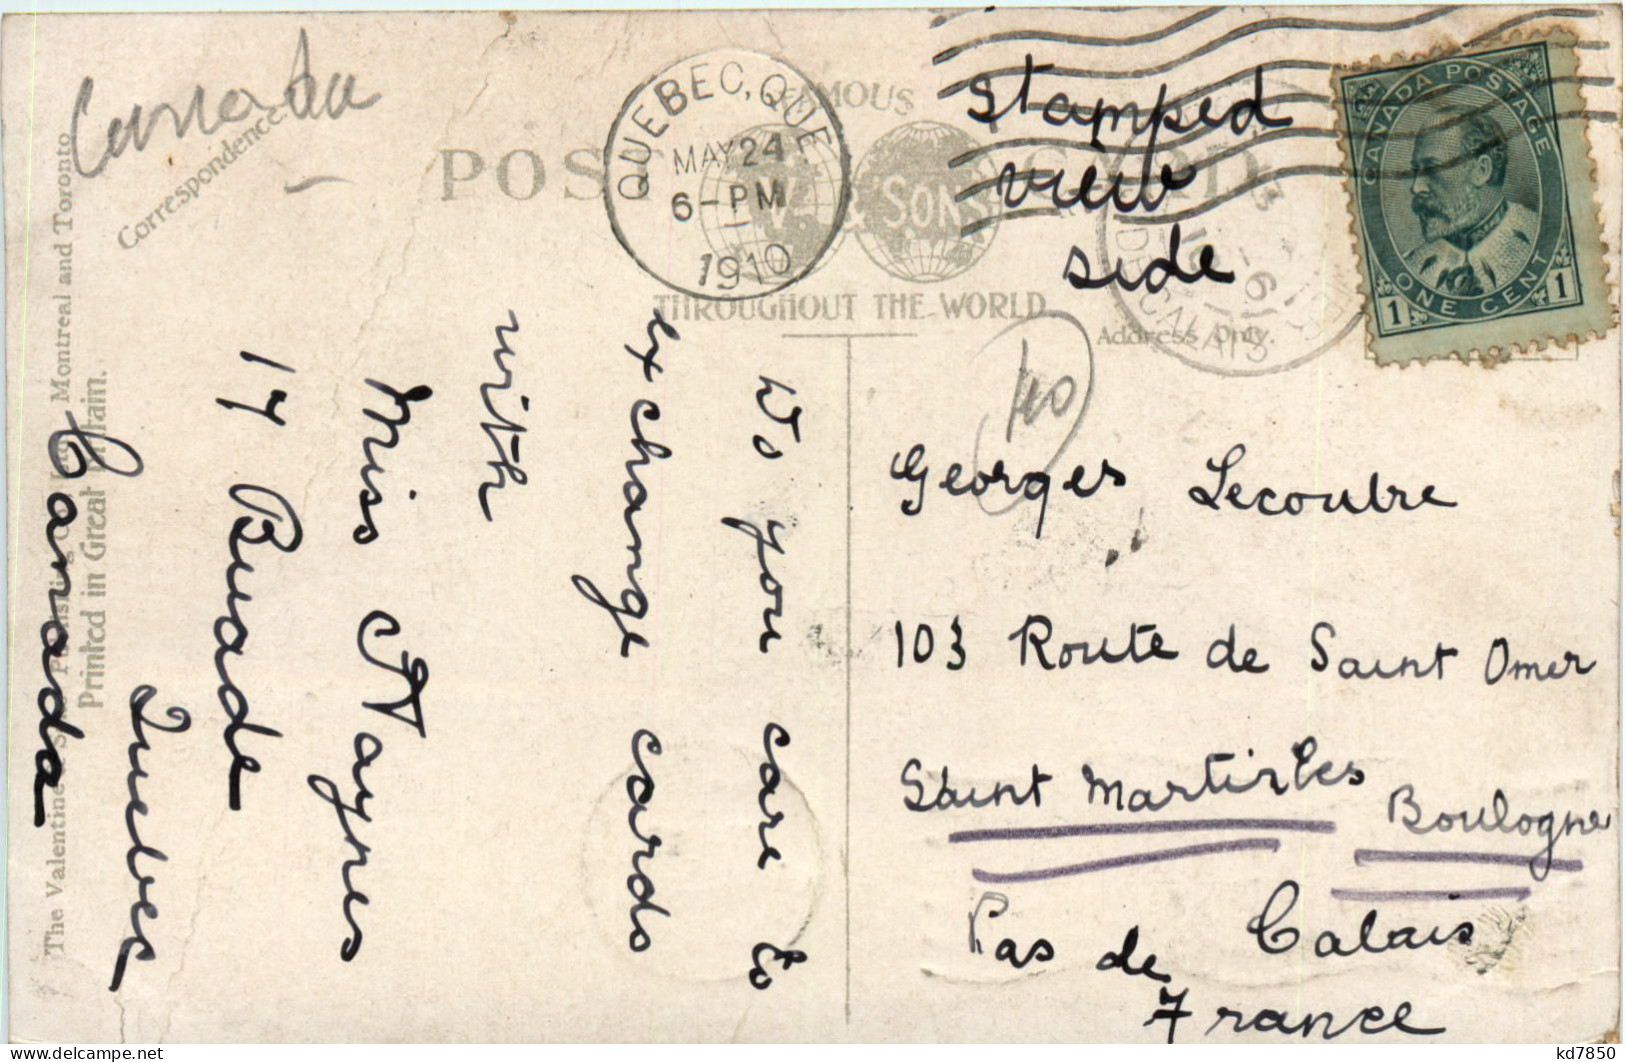 Canada
Correspondence.
FAMOUS
POST CARD
V. & SONS
THROUGHOUT THE WORLD
Address Only.
QUEBEC, QUE
MAY 24
6-PM
1910
CANADA POSTAGE
ONE CENT
1 1
Stamped
view
side
CALAIS
40
Do you care to
exchange cards
with
Miss A Haynes
17 Buade
Quebec
Canada
Georges Lecoutre
103 Route de Saint Omer
Saint Martin les Boulogne
Pas de Calais
France
The Valentine & Sons Publishing Co. Ltd. Montreal and Toronto
Printed in Great Britain.
kd7850